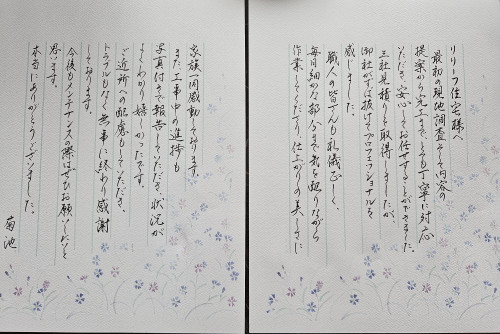 リリーフ住宅様へ
最初の現地調査そして内容の
提案から完工まで、とても丁寧に対応
いただき、安心してお任せすることができました。
三社見積りして取得しましたが、
御社がずば抜けてプロフェッショナルを
感じました。
職人の皆さんも礼儀正しく、
毎日細かな部分まで気を配りながら
作業してくださり、仕上がりの美しさに
家族一同感動しております。
また工事中の進捗も
写真付きで報告していただき、状況が
よくわかり嬉しかったです。
ご近所への配慮もしていただき、
トラブルもなく無事に終わり感謝
しております。
今後もメンテナンスの際はぜひお願いしたいと
思います。
本当にありがとうございました。
菊池